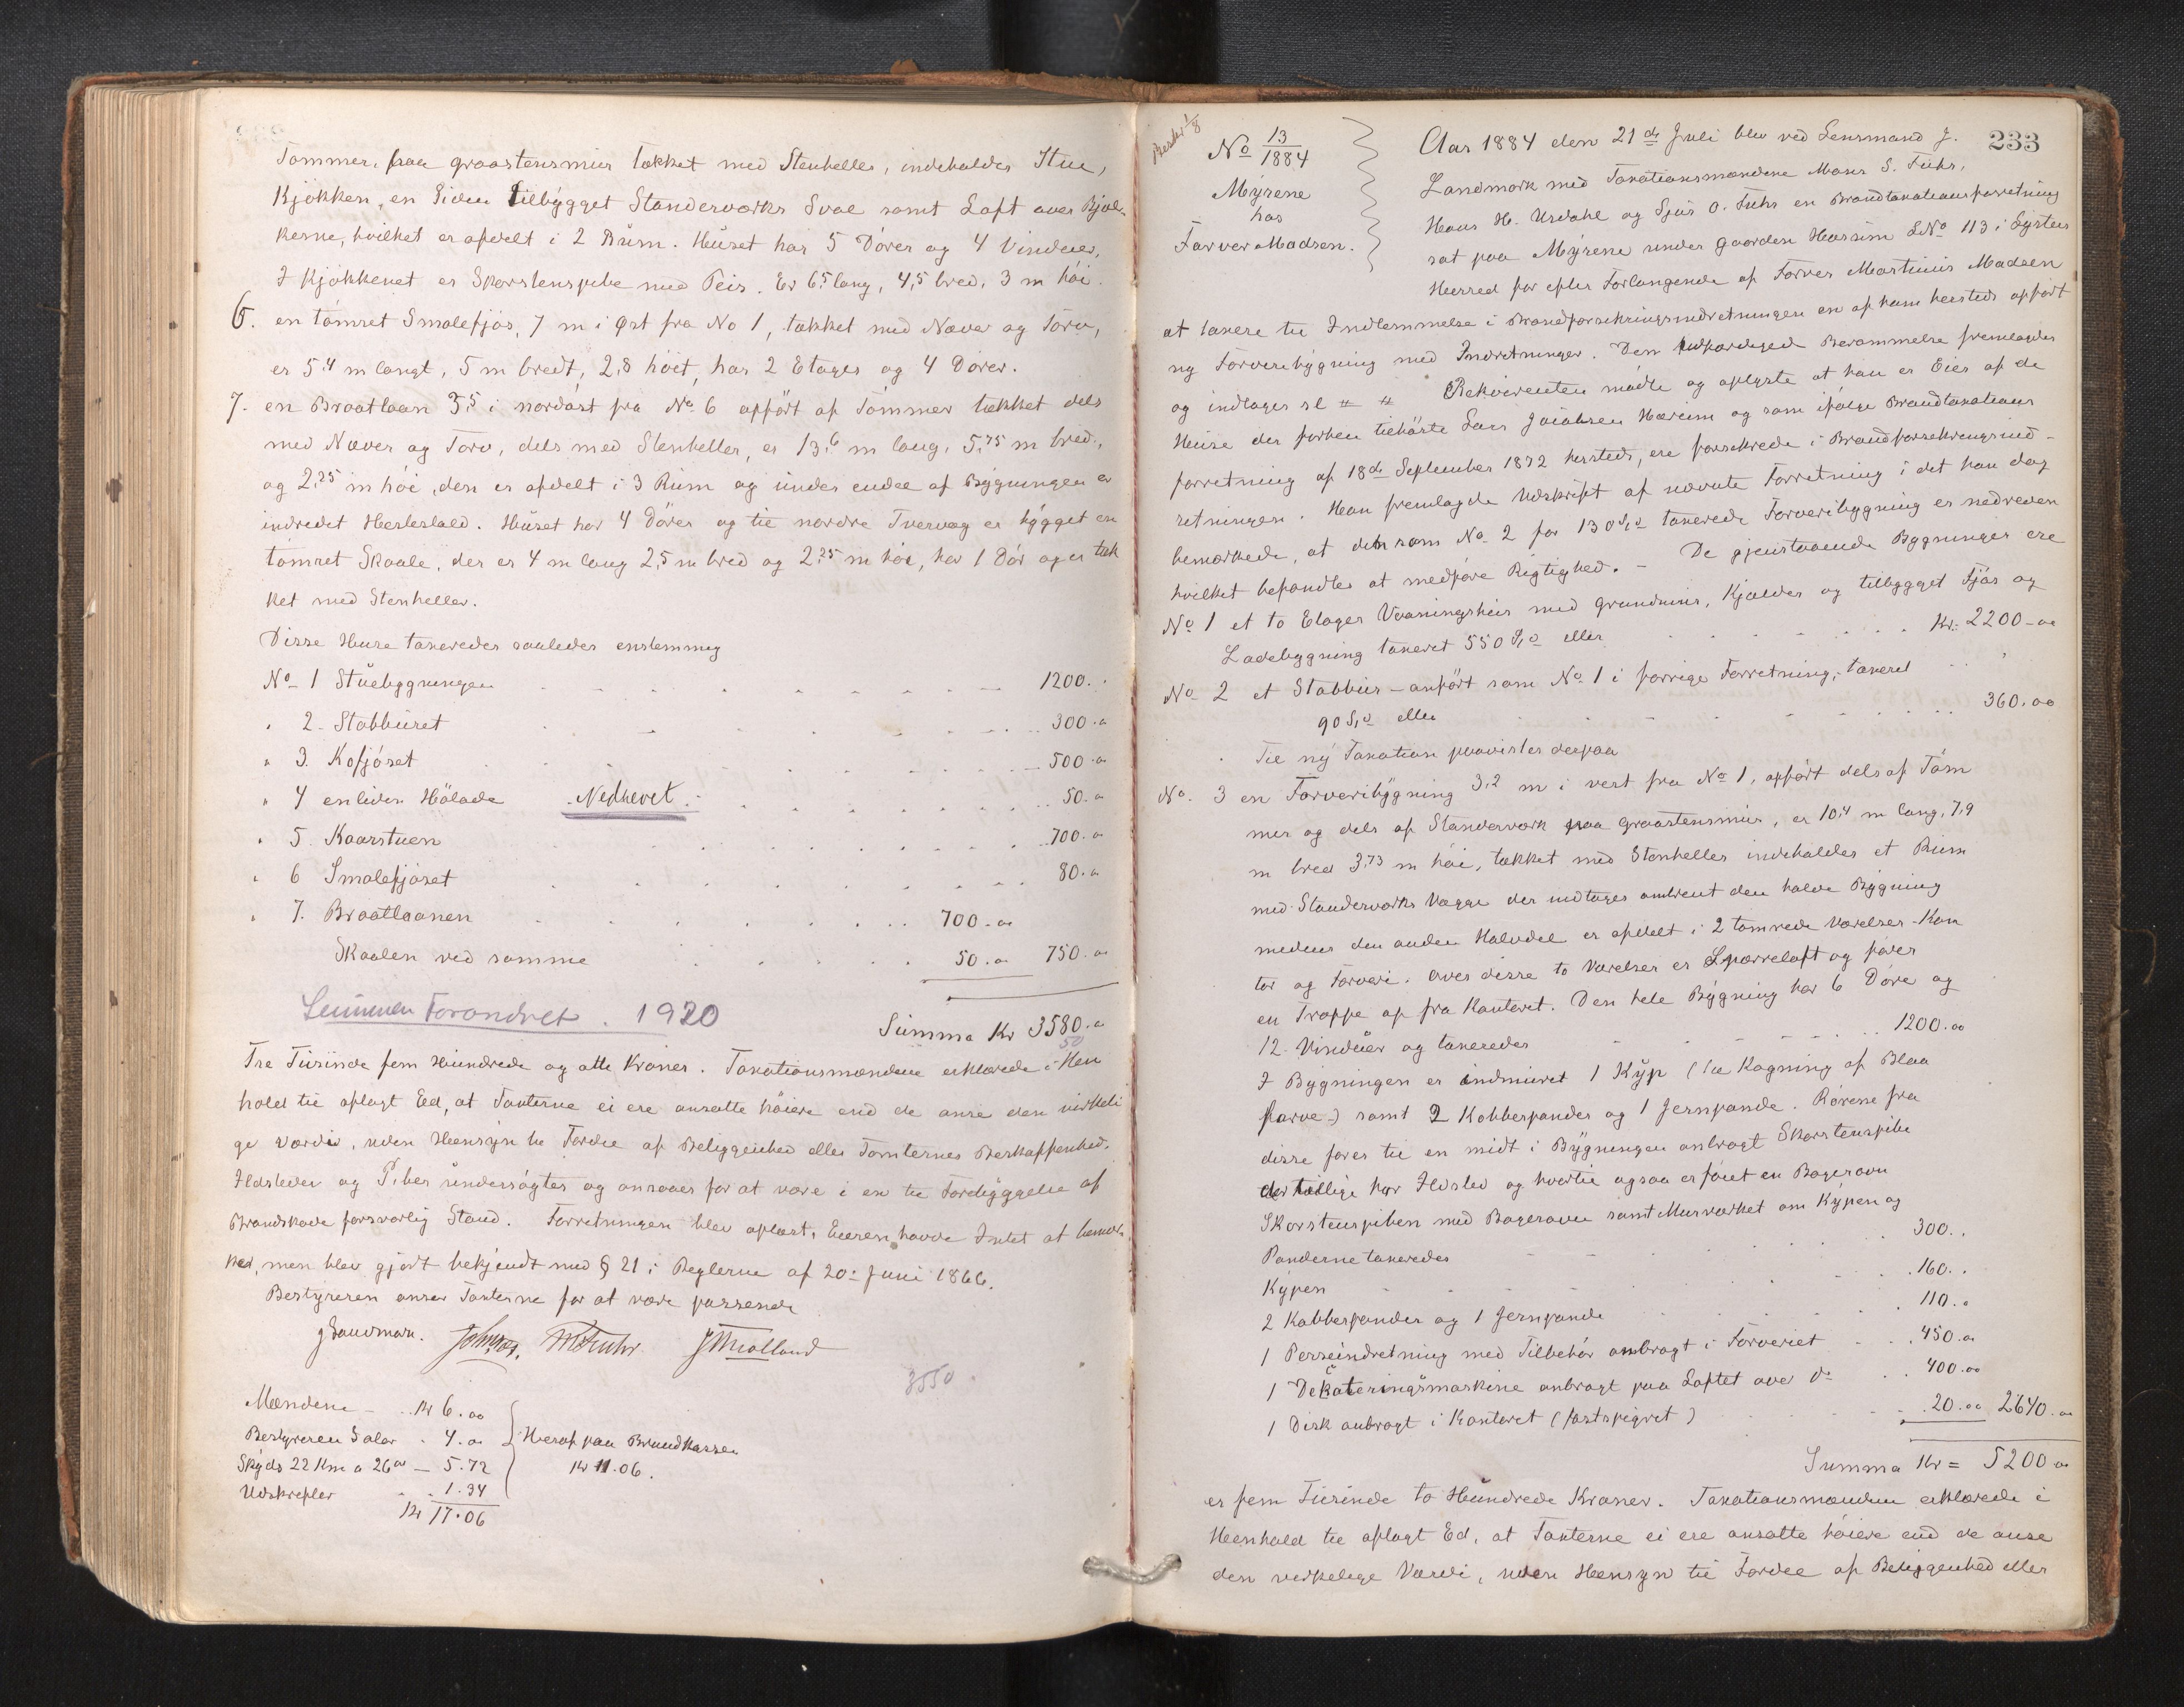 Tømmer, paa graastensmur tækket med Stenheller, indeholder Stue,
Kjøkken, en Siden tilbygget Standerværks Sval samt Loft over Bjæl-
kerne, hvilket er afdelt i 2 Rum. Huset har 5 Dører og 4 Vinduer,
I Kjøkkenet er Skorstenspibe med Peis. Er 6,5 lang, 4,5 bred, 3 m høi.
6. en tømret Smalefjøs, 7 m i Øst fra No 1, tækket med Næver og Torv,
er 5,4 m langt, 5 m bredt, 2,8 høit, har 2 Etager og 4 Dører.
7. en Braatlaan 3,5 i nordøst fra No 6 opført af Tømmer tækket dels
med Næver og Torv, dels med Stenheller, er 13,6 m lang, 5,75 m bred,
og 2,25 m høi, den er afdelt i 3 Rum og under endel af Bygningen er
indredet Hestestald. Huset har 4 Dører og til nordre Tvervæg er bygget en
tømret Skaale, der er 4 m lang 2,5 m bred og 2,25 m høi, har 1 Dør og er tæk
ket med Stenheller.
Disse Huse taxeredes saaledes enstemmig
No 1 Stuebygningen 1200..
" 2. Stabburet 300.oo
" 3. Kofjøset 500.oo
" 4 en liden Hølade Nedrevet. 50.oo
" 5. Kaarstuen 700.oo
" 6 Smalefjøset 80.oo
" 7. Braatlaanen 700.oo
Skaalen ved samme 50.oo 750.oo
Summen Forandret. 1920
Summa Kr 3580.oo
50
Tre Tusinde fem Hundrede og otte Kroner. Taxationsmændene erklærede i Hen
hold til aflagt Ed, at Taxterne ei ere ansatte høiere end de anse den virkeli
ge Værdi, uden Hensyn til Fordel af Beliggenhed eller Tomternes Beskaffenhed.
Ildsteder og Piber undersøgtes og ansaaes for at være i en til Forebyggelse af
Brandskade forsvarlig Stand. Forretningen blev oplæst, Eieren havde Intet at bemær-
ke, men blev gjort bekjendt med § 21 i Reglerne af 20. Juni 1866.
Bestyreren anser Taxterne for at være passende
J Landmark.
3550.
Mændene Kr 6.oo
Bestyreren Salær 4.oo
Skyds 22 Km a 26 ør 5.72
Udskrifter 1.34
Kr 17.06
Heraf paa Brandkassen
Kr 11.06.
233
No 13/1884
Myrene
hos
Farver Madsen.
Aar 1884 den 21de Juli blev ved Lensmand J.
Landmark med Taxationsmændene Mons S. Fuhr,
Hans H. Urdahl og Sjur O. Fuhr en Brandtaxationsforretning
sat paa Myrene under gaarden Hærum LNo 113 i Lyster
Herred for efter Forlangende af Farver Martinus Madsen
at taxere til Indlemmelse i Brandforsikringsindretningen en af ham hersteds opført
ny Farveribygning med Indretninger. Den udfærdiged Berammelse fremlagdes
og indtages sl " " Rekvirenten mødte og oplyste at han er Eier af de
Huse der forhen tilhørte Lars Jacobsen Hæreim og som ifølge Brandtaxations
forretning af 18de September 1872 hersteds, ere forsikrede i Brandforsikringsind-
retningen. Han fremlagde Udskrift af nævnte Forretning i det han dog
bemærkede, at den som No 2 for 130 Spd taxerede Farveribygning er nedreven
hvilket befandtes at medføre Rigtighed. – De gjenstaaende Bygninger ere
No 1 et to Etages Vaaningshus med grundmur, Kjælder og tilbygget Fjøs og
Ladebygning taxeret 550 Spd eller Kr. 2200-oo
No 2 et Stabbur – anført som No 1 i forrige Forretning, taxeret
90 Spd eller 360.oo
Til ny Taxation paavistes derpaa
No. 3 en Farveribygning 3,2 m i vest fra No 1, opført dels af Tøm
mer og dels af Standerværk paa graastensmur, er 10,4 m lang, 7,9
m bred 3,73 m høi, tækket med Stenheller indeholder et Rum
med Standerværks Vægge der indtages ombrent den halve Bygning
medens den anden Halvdel er afdelt i 2 tømrede Værelser – Kon
tor og Farveri. Over disse to Værelser er Sperreloft og fører
en Trappe op fra Kontoret. Den hele Bygning har 6 Døre og
12 Vinduer og taxeredes 1200.oo
I Bygningen er indmuret 1 Kyp (til Kogning af Blaa
farve) samt 2 Kobberpander og 1 Jernpande. Rørene fra
disse fører til en midt i Bygningen anbragt Skorstenspibe
der tillige har Ildsted og hvortil ogsaa er føiet en Bagerovn
Skorstenspiben med Bagerovn samt Murværket om Kypen og
Panderne taxeredes 300..
Kypen 160..
2 Kobberpander og 1 Jernpande 110..
1 Perseindretning med Tilbehør anbragt i Farveriet 450.oo
1 Dekateringsmaskine anbragt paa Loftet over do 400.oo
1 Disk anbragt i Kontoret (fastspigret) 20.oo 2640.oo
Summa Kr = 5200.oo
er fem Tusinde to Hundrede Kroner. Taxationsmændene erklærede i
Henhold til aflagt Ed, at Taxterne ei ere ansatte høiere end de anse
den virkelige Værdi, uden Hensyn til Fordel af Beliggenhed eller